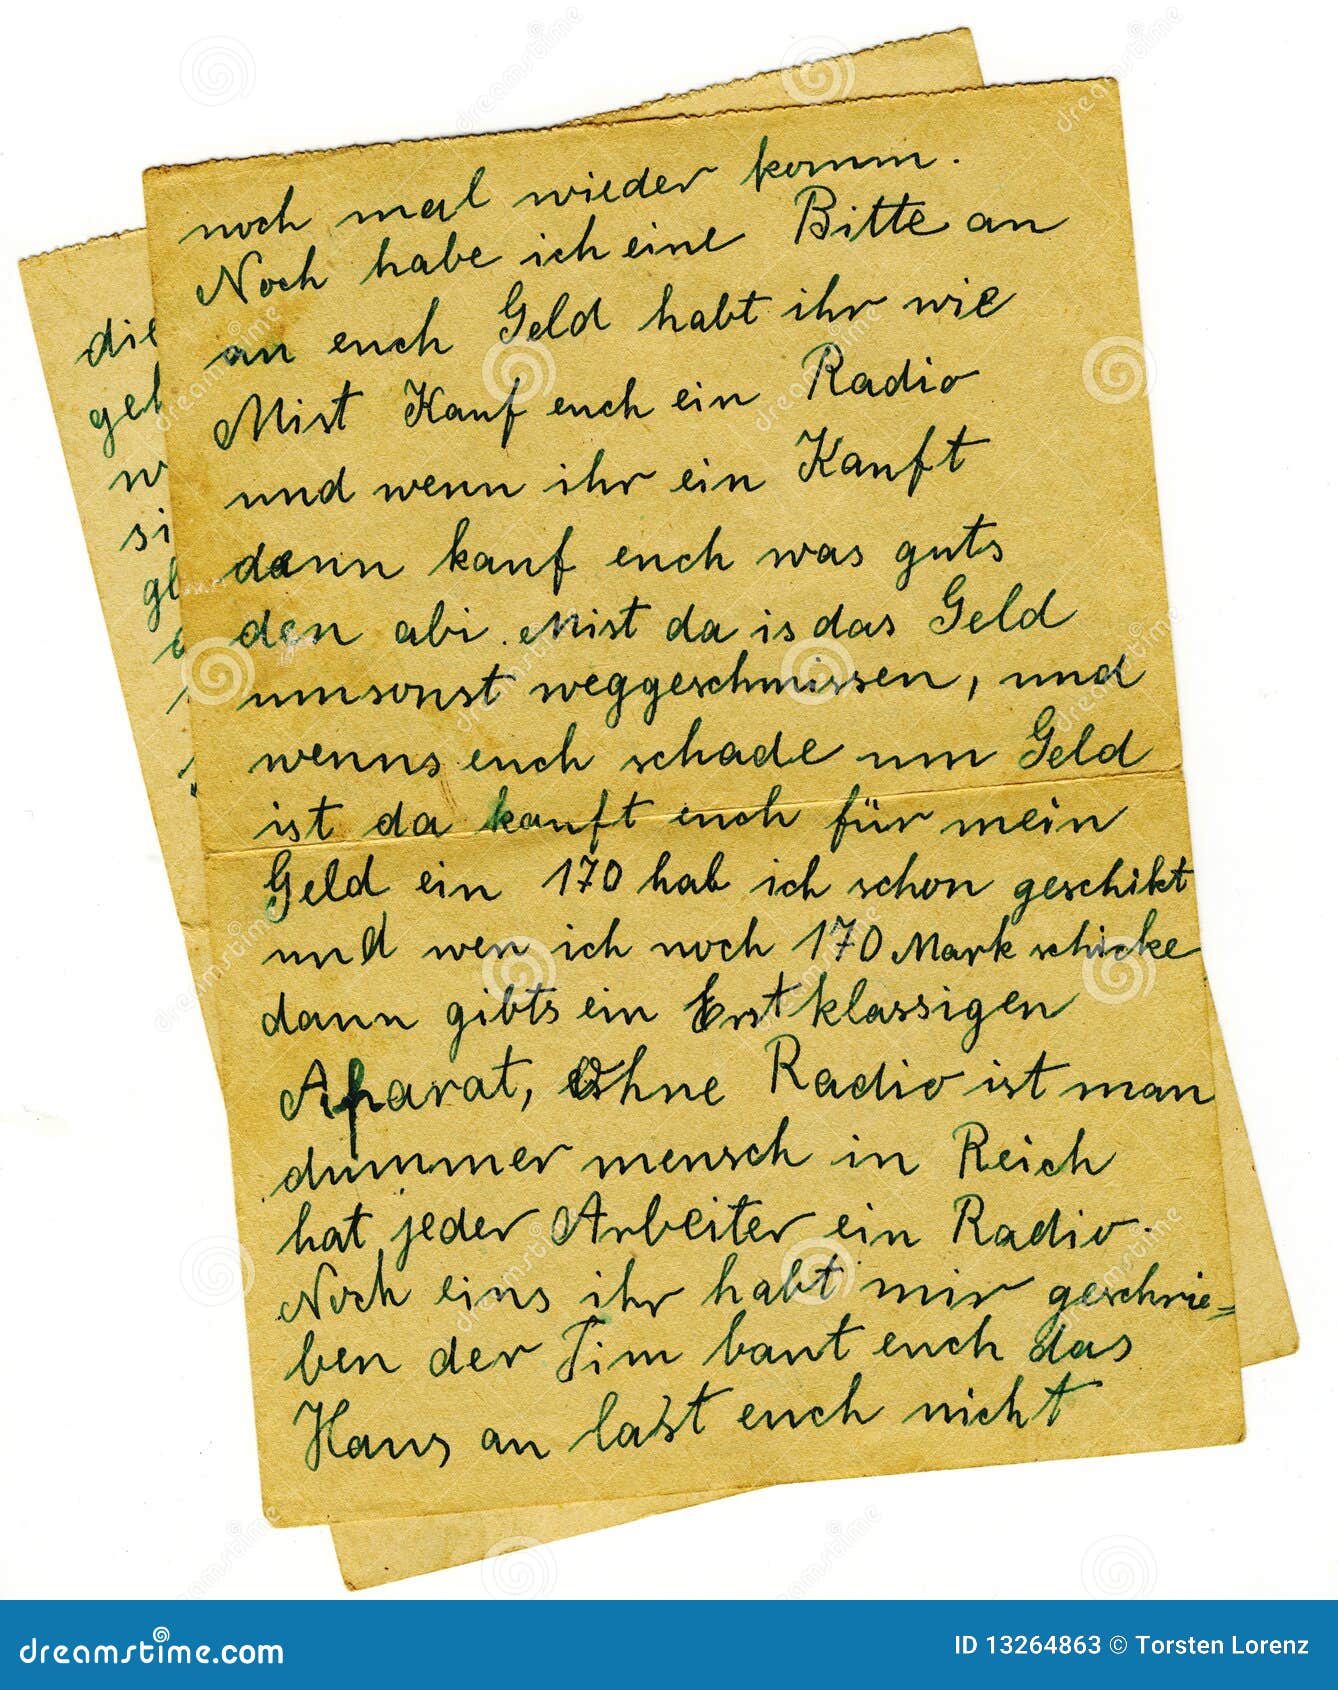 noch mal wieder komm.
Noch habe ich eine Bitte an
an euch Geld habt ihr wie
Mist Kauf euch ein Radio
und wenn ihr ein Kauft
dann kauf euch was guts
den abi. Mist da is das Geld
umsonst weggeschmissen, und
wenns euch schade um Geld
ist da kauft euch für mein
Geld ein 170 hab ich schon geschikt
und wen ich noch 170 Mark schicke
dann gibts ein Erstklassigen
Aparat, Ohne Radio ist man
dummer mensch in Reich
hat jeder Arbeiter ein Radio.
Noch eins ihr habt mir geschrie=
ben der Tim baut euch das
Haus an last euch nicht
die
geh
w
si
gl
dreamstime
dreamstime.com
ID 13264863 © Torsten Lorenz